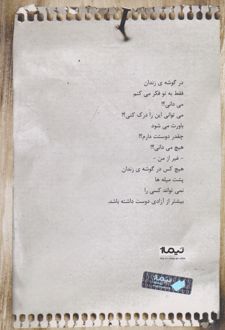 در گوشه ی زندان
فقط به تو فکر می کنم
می دانی؟!
می توانی این را درک کنی؟!
باورت می شود
چقدر دوستت دارم؟!
هیچ می دانی؟!
- غیر از من -
هیچ کس در گوشه ی زندان
پشت میله ها
نمی تواند کسی را
بیشتر از آزادی دوست داشته باشد.
نیماژ